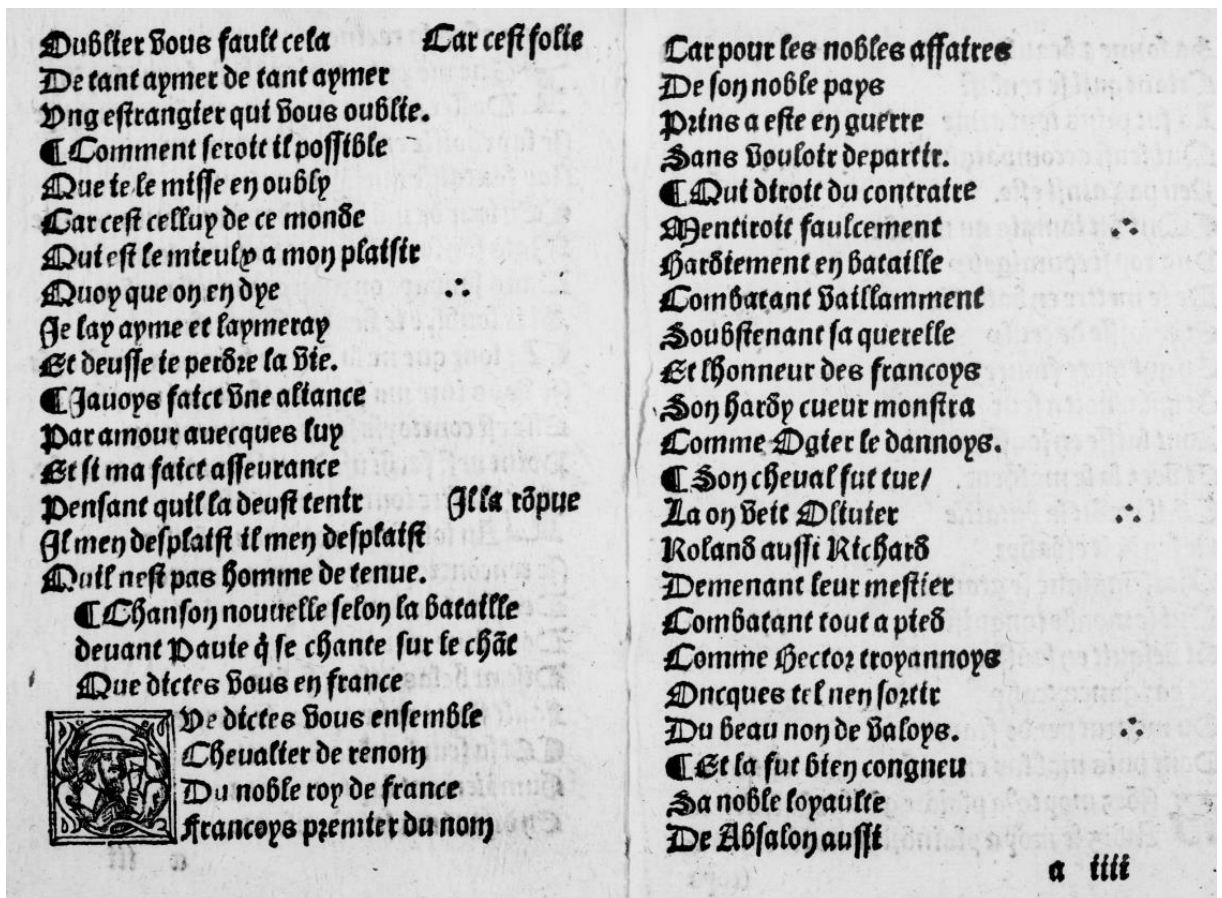 Oublier vous fault cela Car cest folie
De tant aymer de tant aymer
Ung estrangier qui vous oublie.
¶ Comment seroit il possible
Que ie le misse en oubly
Car cest celluy de ce monde
Qui est le mieulx a mon plaisir
Quoy que on en dye ∴
Je lay ayme et laymeray
Et deusse ie perdre la vie.
¶ Javoys faict vne aliance
Par amour auecques luy
Et si ma faict asseurance
Pensant quil la deust tenir Il la rōpue
Il men desplaist il men desplaist
Quil nest pas homme de tenue.
¶ Chanson nouuelle selon la bataille
deuant Pauie q̄ se chante sur le chāt
Que dictes vous en france
QVe dictes vous ensemble
Cheualier de renom
Du noble roy de france
Francoys premier du nom
Car pour les nobles affaires
De son noble pays
Prins a este en guerre
Sans vouloir departir.
¶ Qui diroit du contraire
Mentiroit faulcement ∴
Hardiement en bataille
Combatant vaillamment
Soubstenant sa querelle
Et lhonneur des francoys
Son hardy cueur monstra
Comme Ogier le dannoys.
¶ Son cheual fut tue/
La on veit Oliuier ∴
Roland aussi Richard
Demenant leur mestier
Combatant tout a pied
Comme Hector troyannoys
Oncques tel nen sortir
Du beau non de valoys. ∴
¶ Et la fut bien congneu
Sa noble loyaulte
De Absalon aussi
a iiii